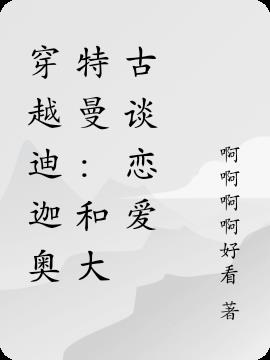 穿越迪迦奥
特曼：和大
古谈恋爱
啊啊啊啊好看 著